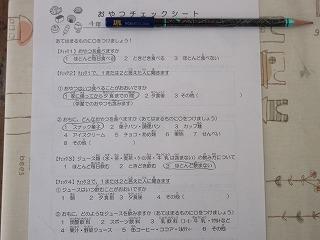 おやつチェックシート
4年
あてはまるものに○をつけましょう！
【チェック1】おやつを食べますか
1 ほとんど毎日食べる 2 ときどき食べる 3 ほとんど食べない
【チェック2】チェック1で、1または2と答えた人に聞きます
① おやつはいつ食べることがおおいですか
1 家に帰ってから夕食までの間 2 夕食後 3 その他（ ）
（学童でのおやつも含みます）
② おもに、どんなおやつを食べますか（あてはまるものに○をつけましょう）
1 スナック菓子 2 菓子パン・調理パン 3 カップ麺
4 アイスクリーム 5 チョコ・あめ類 6 果物 7 せんべい
8 その他（ ）
【チェック3】ジュース類（水・茶・麦茶・牛乳は含まない）の飲み方について
1 ほとんど毎日飲む 2 ほとんど飲まない
【チェック4】チェック3で、1または2と答えた人に聞きます
① ジュースはいつ飲むことがおおいですか
1 朝 2 夕食前 3 夕食後 4 その他（ ）
② おもに、どのようなジュースを飲みますか（あてはまるものに○をつけましょう）
1 炭酸飲料 2 スポーツ飲料 3 乳飲料
4 果汁・野菜ジュース 5 缶コーヒー・ココア・缶汁 6 その他（ ）
bees